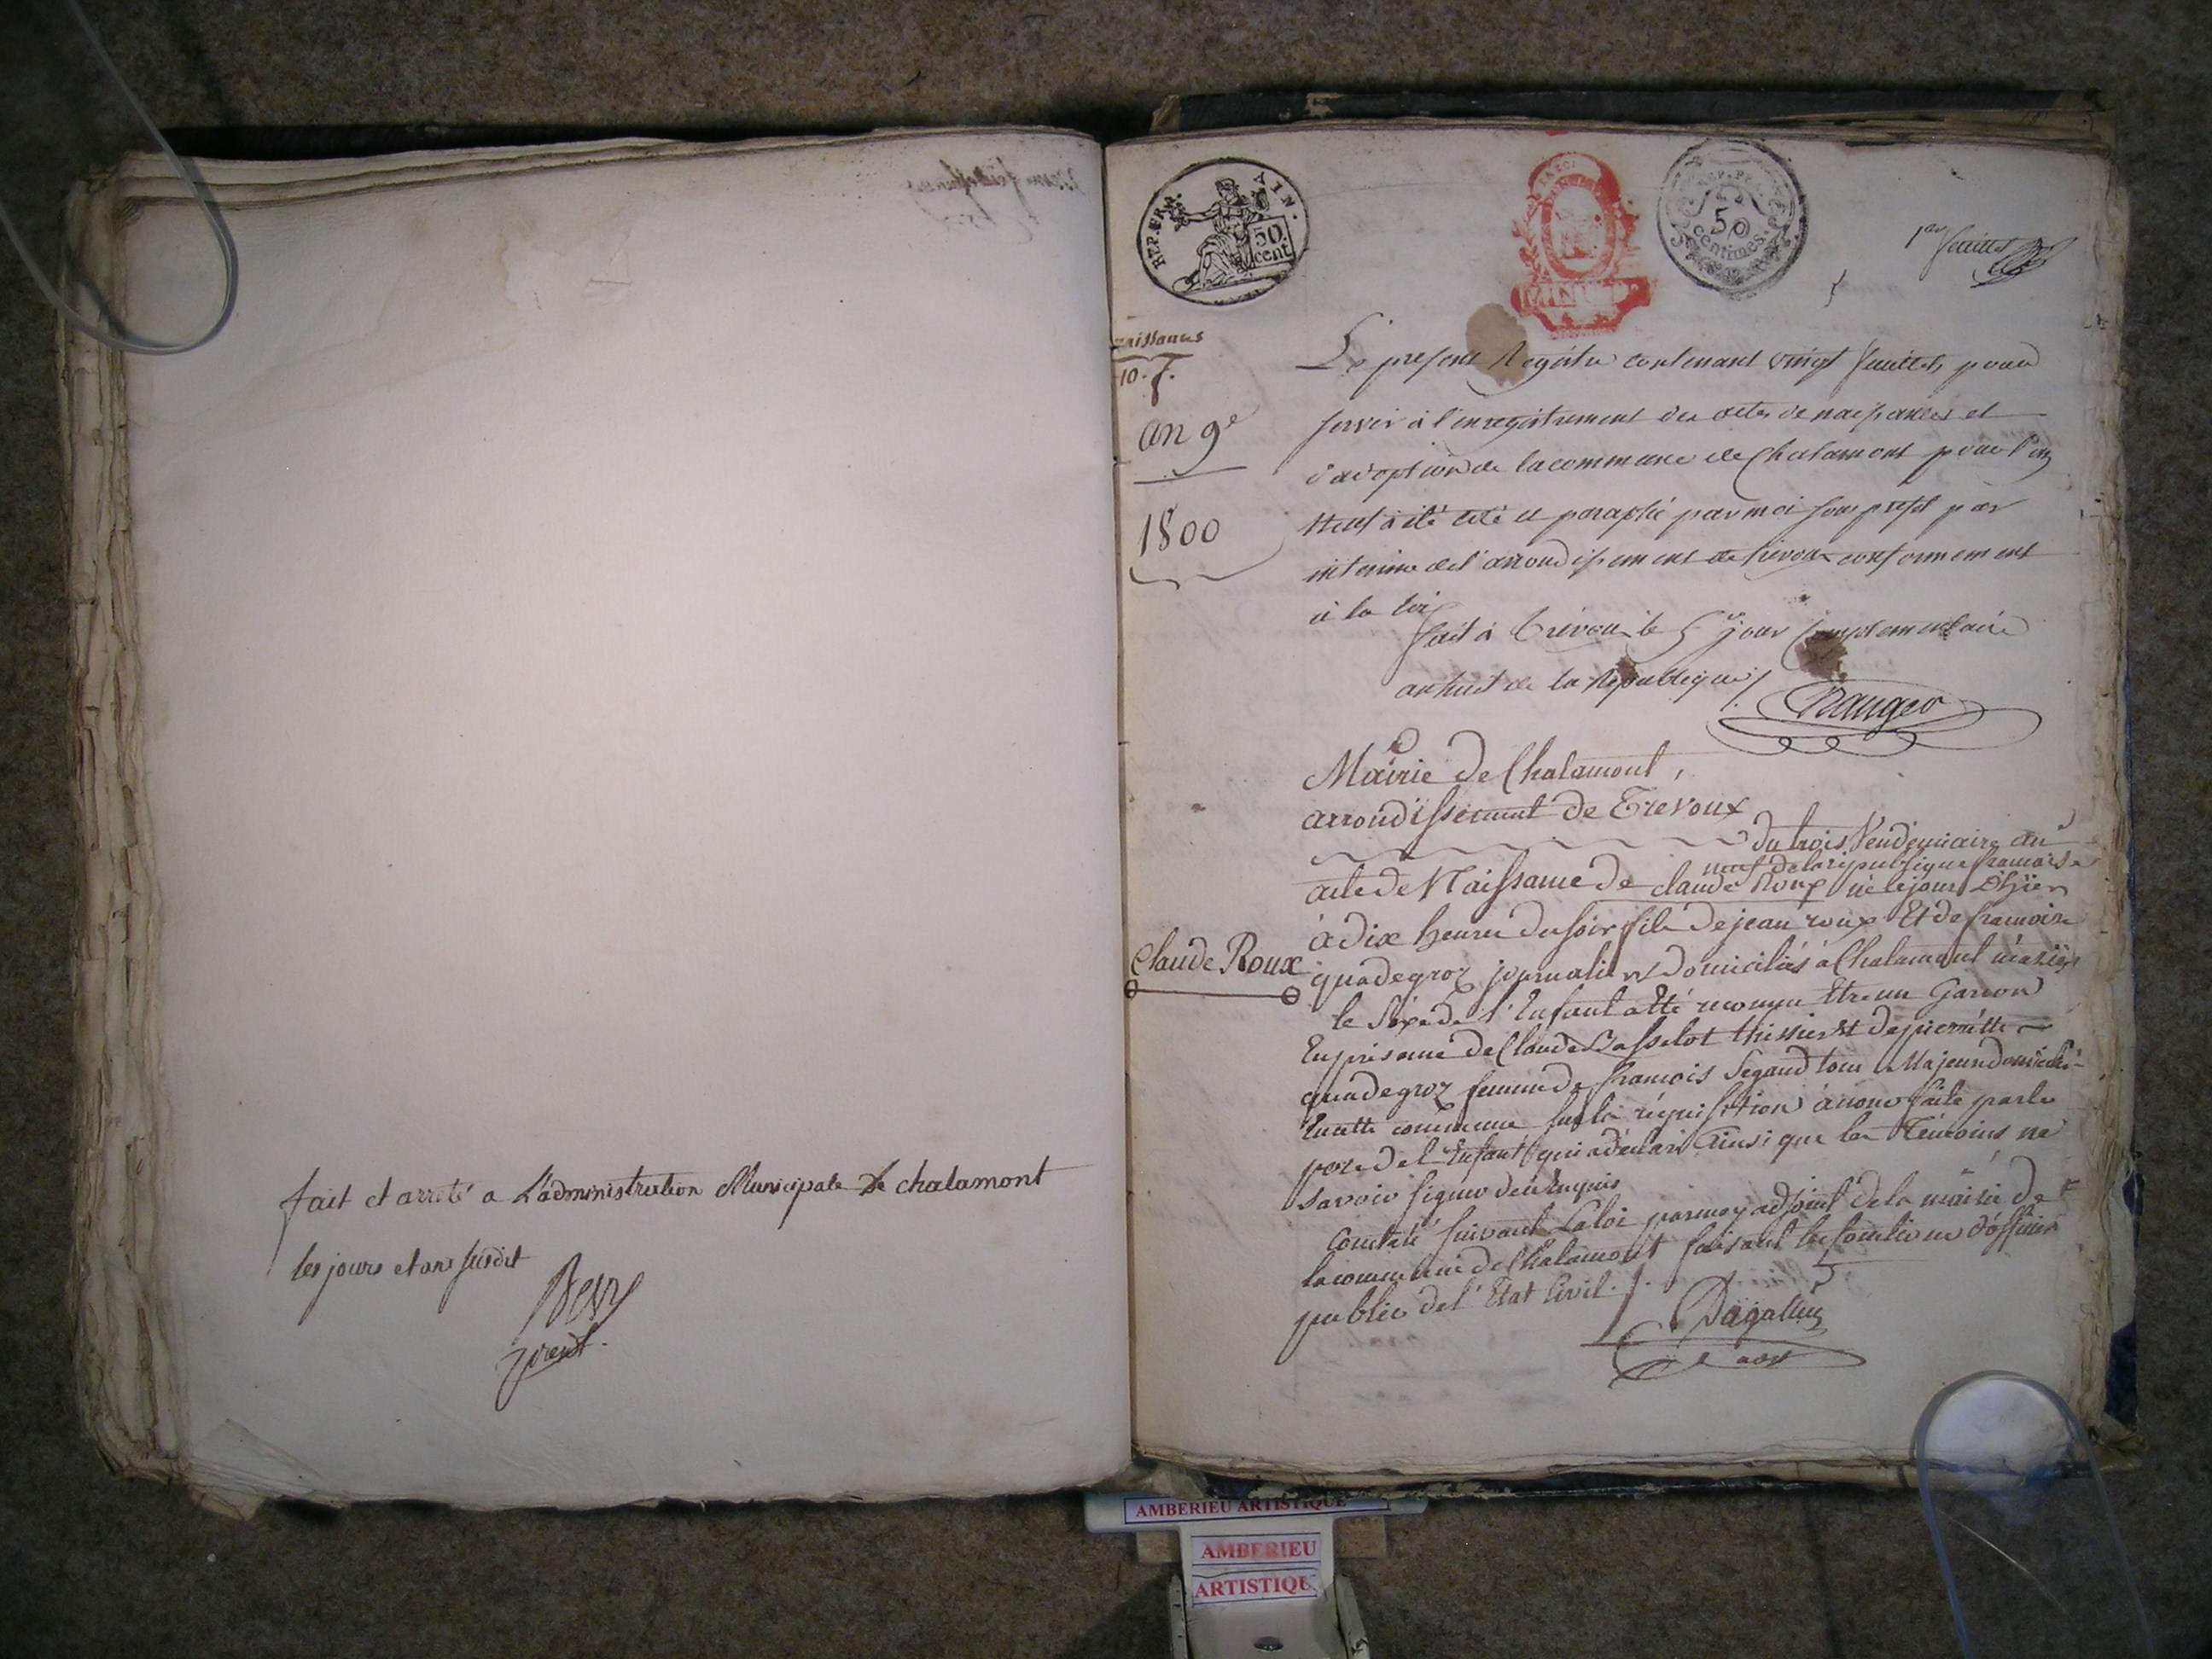 fait et arreté a L'administration Municipale De chalamont
les jours et ans susdit
REP. FRA. AIN.
50 cent
REP. FR.
50 centimes.
1er feuillet
naissances
10.
an 9e
1800
Le present Registre contenant vingt feuillets pour
servir à l'enregistrement des actes de naissances et
d'adoption de la commune de Chalamont pour l'an
neuf à été coté et paraphé par moi sous prefet par
interim de l'arrondissement de Trévoux conformement
à la loi
fait à Trévoux le 5e jour Complementaire
an huit de la Republique /.
Mairie De Chalamont,
arrondissement De Trevoux
Du trois Vendemiaire an
neuf De la republique francoise
acte De Naissance De claude Roux né le jour D'hier
à Dix heures Du soir fils De jean roux Et De francoise
Claude Roux
quadegroz journaliers Domiciliés à Chalamont mariés
le Sexe de l'Enfant a Eté reconnu Etre un Garcon
En présence De Claude Basselot tissier Et De pierrette
quadegroz femme De francois Segaud tous Majeurs Domiciliés
En cette commune sur la réquisition à nous faite par le
pere De l'Enfant qui a déclaré Ainsi que les Témoins ne
savoir signer De ce Enquis
Constaté suivant La loi par moy adjoint De la mairie De
la commune De Chalamont faisant les fonctions D'officier
public De l'Etat Civil. /.
Dagallier
AMBERIEU ARTISTIQUE
AMBERIEU
ARTISTIQU